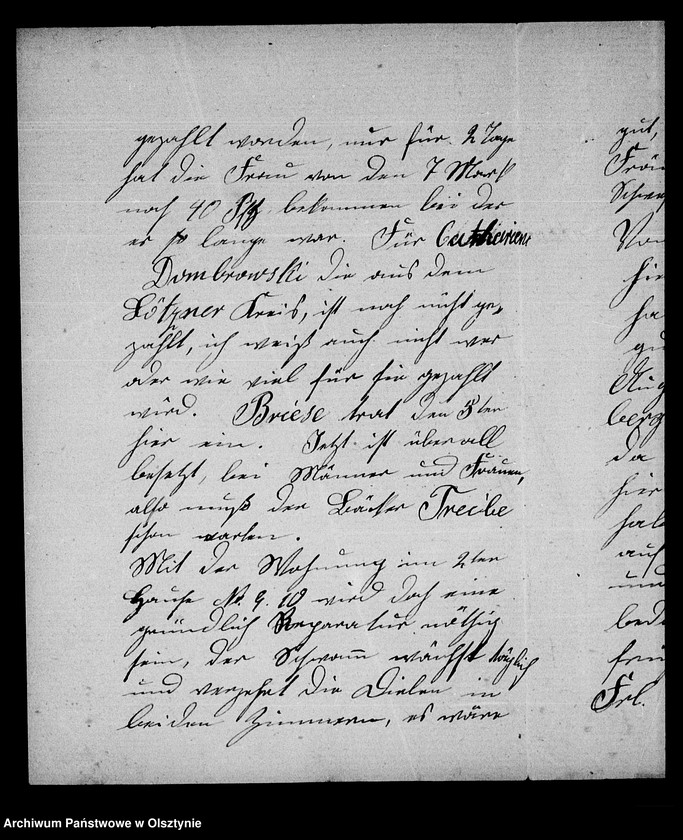 gezahlt worden, nur für 2 Tage
hat die Frau von den 7 Mark
noch 40 Pfg. bekommen bei der
er so lange war. Für Cathariene
Dombrowski die aus dem
Lötzner Kreis, ist noch nicht ge-
zahlt, ich weiß auch nicht wer
oder wie viel für sie gezahlt
wird. Briese trat den 5ten
hier ein. Jetzt ist überall
besetzt, bei Männer und Frauen,
also muß der Bäcker Treibe
schon warten.
Mit der Wohnung im 2ten
Hause No. 9. 10 wird doch eine
gründlich Reparatur nöthig
sein, der Schwam wächst täglich
und verzehrt die Dielen in
beiden Zimmern, es wäre
gut,
hier
ha
gu
Aug
berg
da
hier
hat
auf
und
bed
Frl.
Archiwum Państwowe w Olsztynie